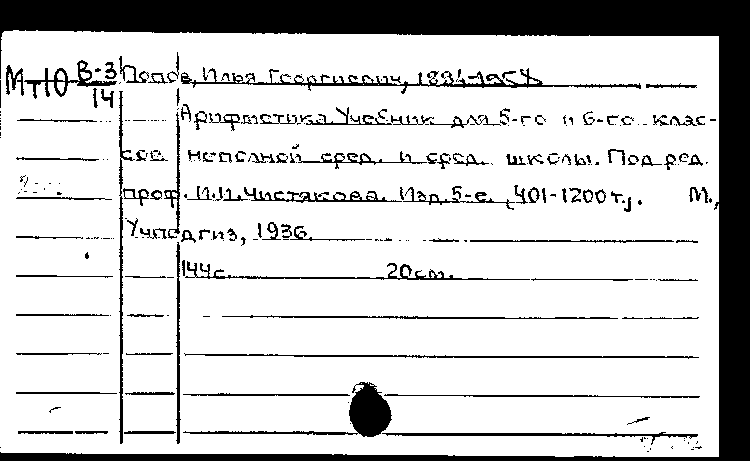 Мт10 В-3/14 Попов, Илья Георгиевич,
Арифметика. Учебник для 5-го и 6-го клас-
сов неполной сред. и сред. школы. Под ред.
проф. И.И. Чистякова. Изд. 5-е. [401-1200 т.]. М.,
Учпедгиз, 1936.
144с. 20см.